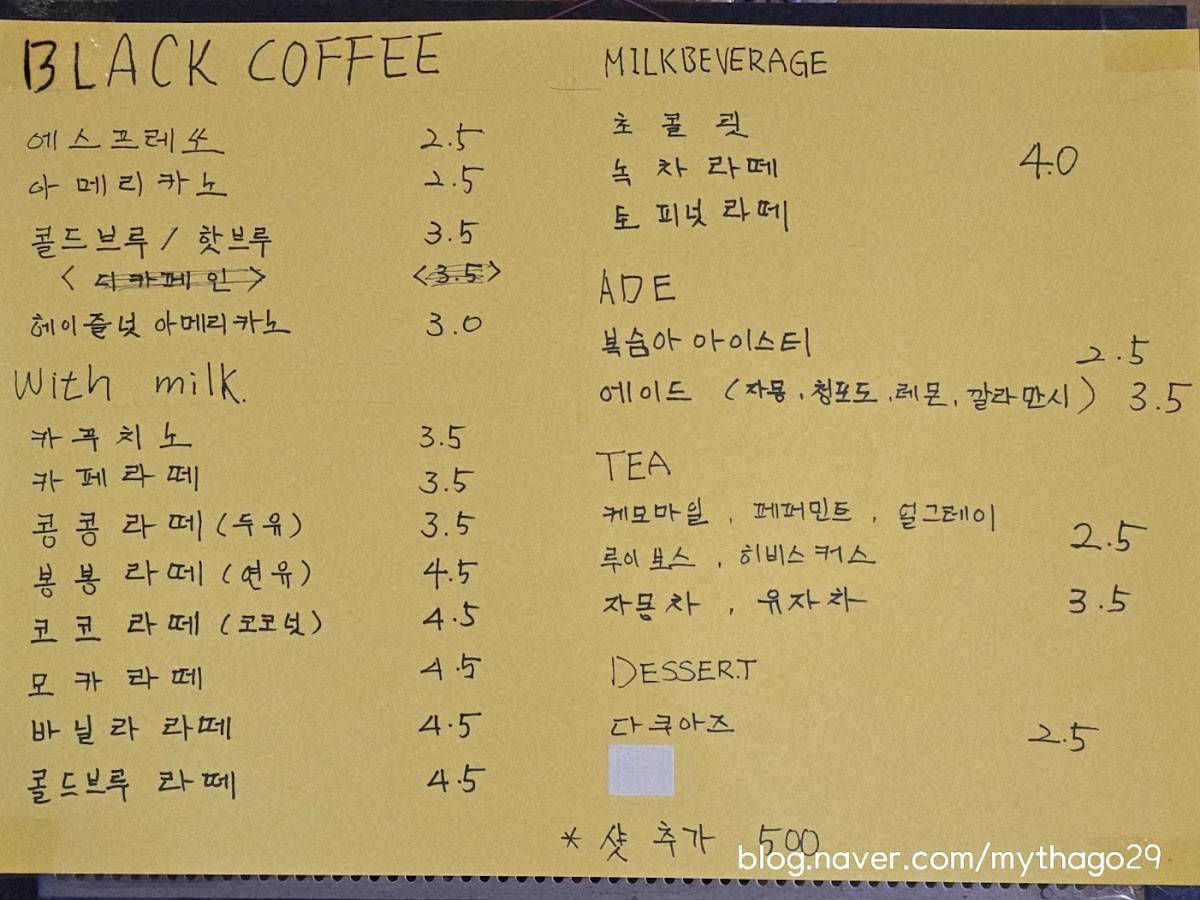 BLACK COFFEE
에스프레쏘 2.5
아메리카노 2.5
콜드브루 / 핫브루 3.5
<디카페인> <3.5>
헤이즐넛 아메리카노 3.0
With milk.
카푸치노 3.5
카페라떼 3.5
콩콩라떼(두유) 3.5
봉봉라떼(연유) 4.5
코코라떼(코코넛) 4.5
모카라떼 4.5
바닐라 라떼 4.5
콜드브루 라떼 4.5
MILKBEVERAGE
초콜릿
녹차라떼 4.0
토피넛라떼
ADE
복숨아 아이스티 2.5
에이드 (자몽, 청포도, 레몬, 깔라만시) 3.5
TEA
케모마일, 페퍼민트, 얼그레이
루이보스, 히비스커스 2.5
자몽차, 유자차 3.5
DESSERT
다쿠아즈 2.5
* 샷 추가 500
blog.naver.com/mythago29